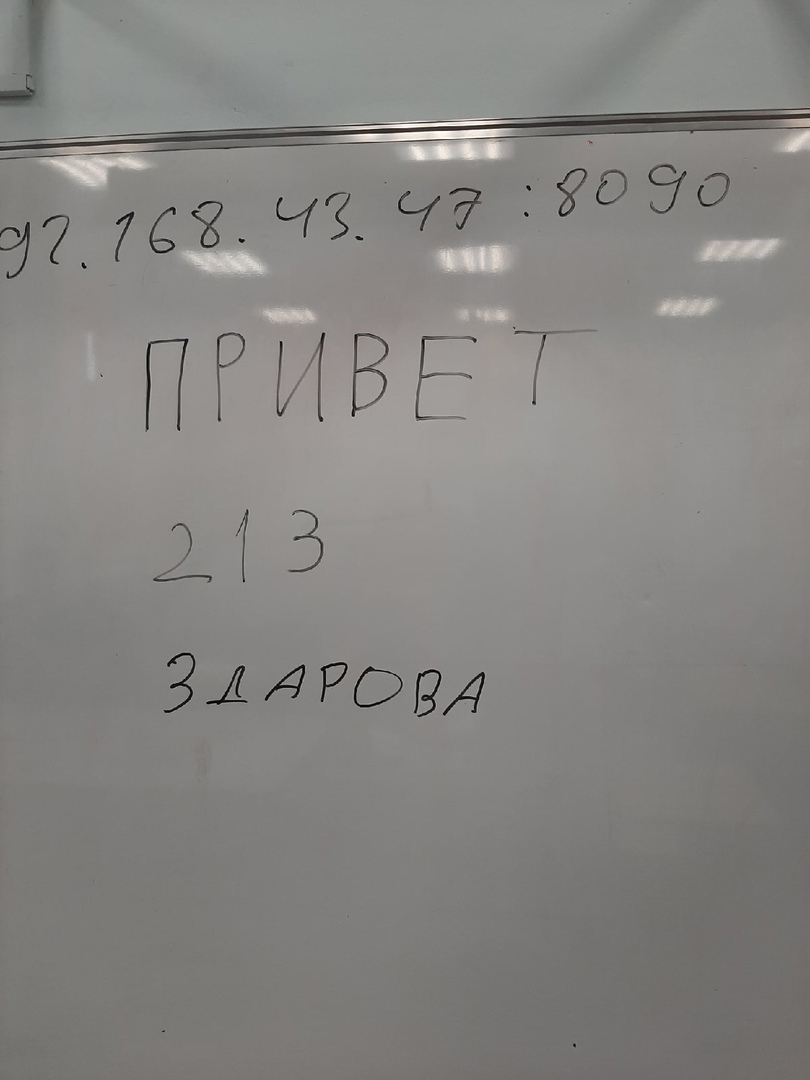 92.168.43.47:8090
ПРИВЕТ
213
ЗДАРОВА